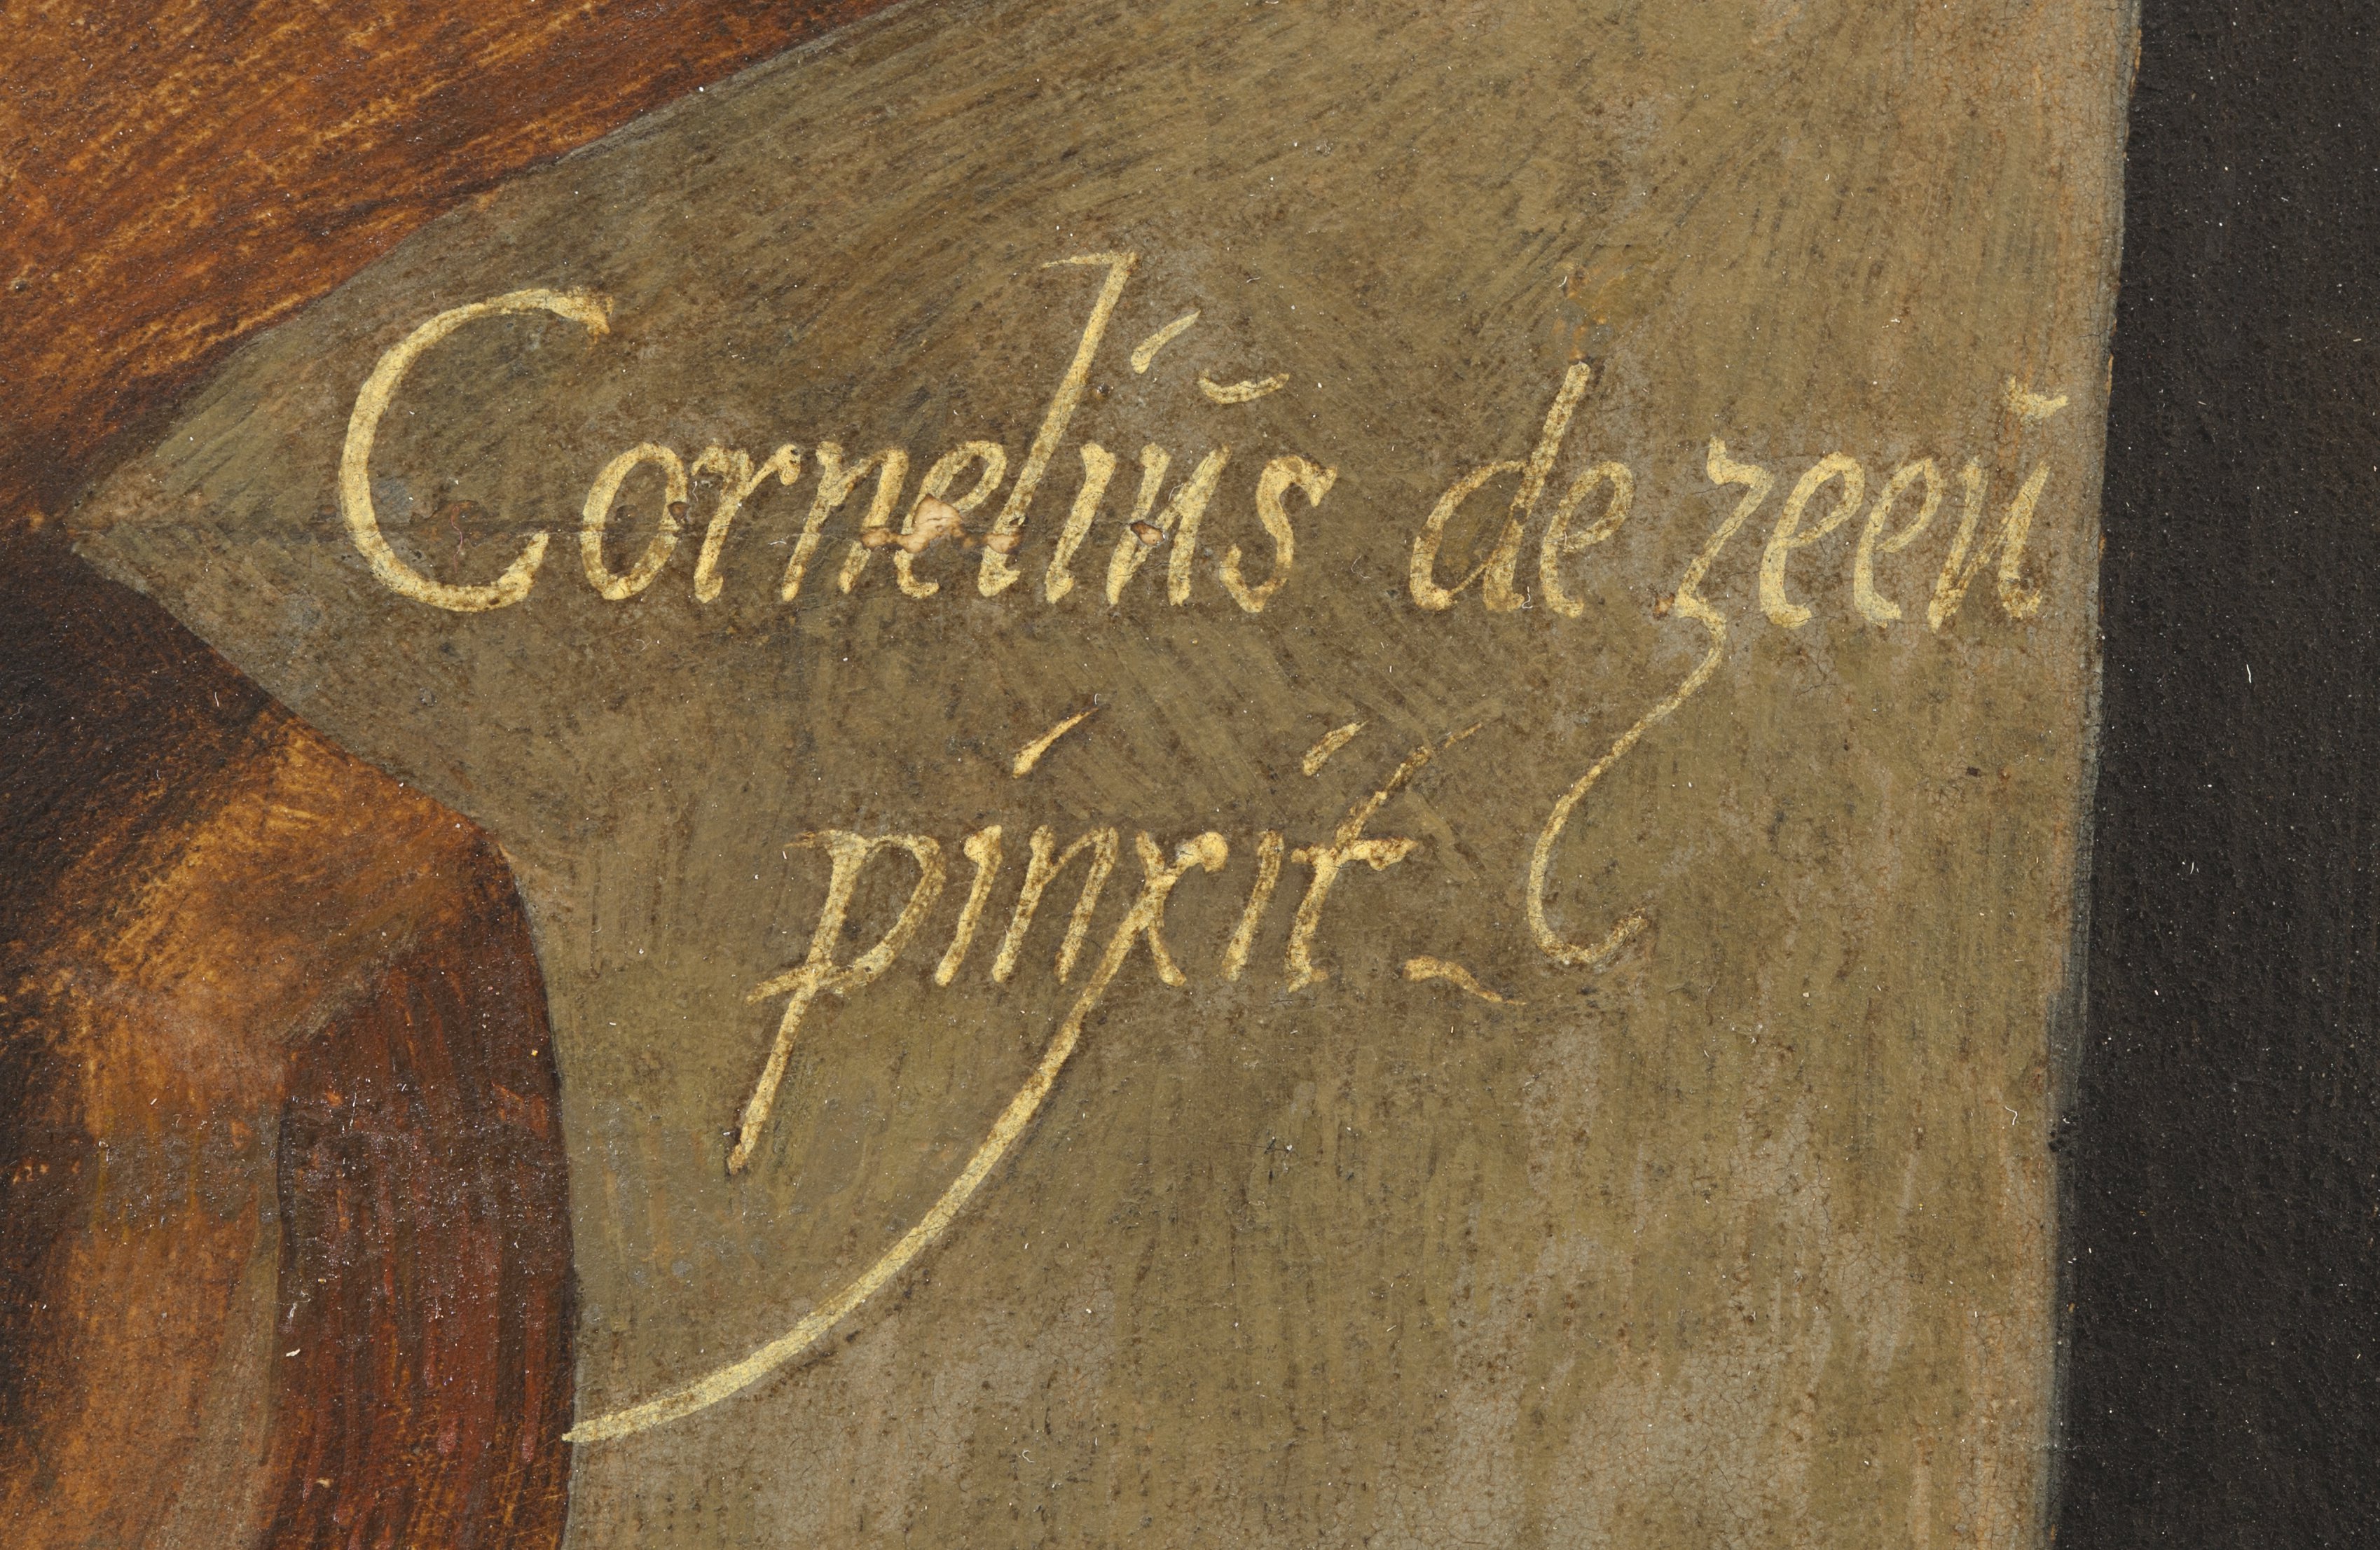 Cornelius de zeeu
pinxit